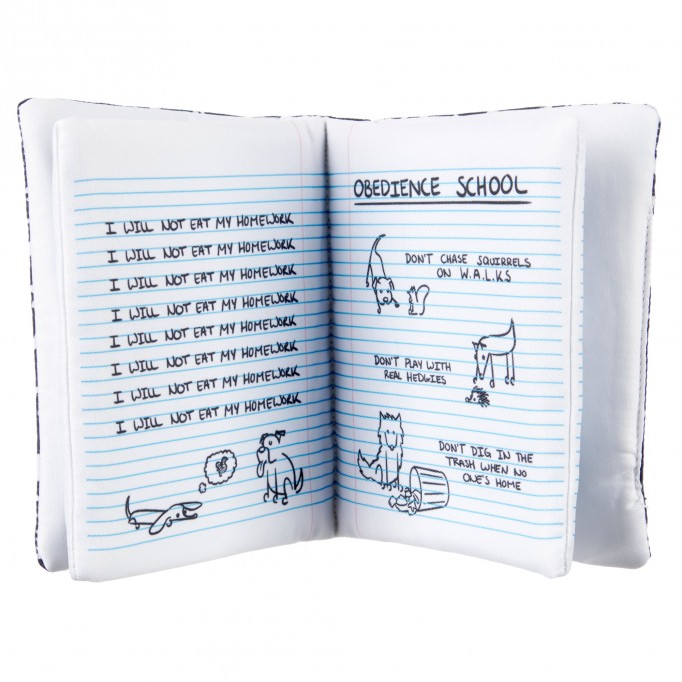 I WILL NOT EAT MY HOMEWORK
I WILL NOT EAT MY HOMEWORK
I WILL NOT EAT MY HOMEWORK
I WILL NOT EAT MY HOMEWORK
I WILL NOT EAT MY HOMEWORK
I WILL NOT EAT MY HOMEWORK
I WILL NOT EAT MY HOMEWORK
I WILL NOT EAT MY HOMEWORK
OBEDIENCE SCHOOL
DON'T CHASE SQUIRRELS
ON W.A.L.KS
DON'T PLAY WITH
REAL HEDGIES
DON'T DIG IN THE
TRASH WHEN NO
ONE'S HOME